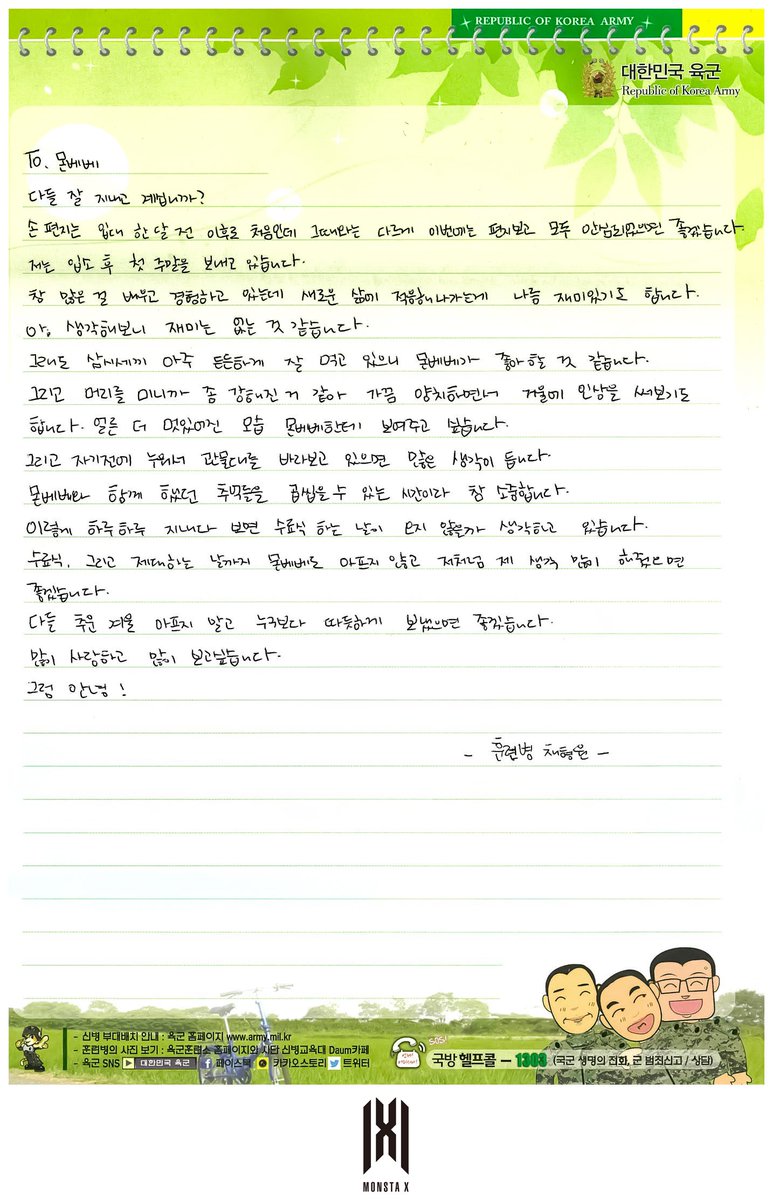 REPUBLIC OF KOREA ARMY
대한민국 육군
Republic of Korea Army
To. 몬베베
다들 잘 지내고 계십니까?
손 편지는 입대 한 달 전 이후로 처음인데 그때와는 다르게 이번에는 편지보고 모두 안심되었으면 좋겠습니다.
저는 입소 후 첫 주말을 보내고 있습니다.
참 많은 걸 배우고 경험하고 있는데 새로운 삶에 적응해나가는게 나름 재미있기도 합니다.
아, 생각해보니 재미는 없는 것 같습니다.
그래도 삼시세끼 아주 든든하게 잘 먹고 있으니 몬베베가 좋아할 것 같습니다.
그리고 머리를 미니까 좀 강해진 거 같아 가끔 양치하면서 거울에 인상을 써보기도
합니다. 얼른 더 멋있어진 모습 몬베베한테 보여주고 싶습니다.
그리고 자기전에 누워서 관물대를 바라보고 있으면 많은 생각이 듭니다.
몬베베와 함께 했던 추억들을 곱씹을 수 있는 시간이라 참 소중합니다.
이렇게 하루하루 지내다 보면 수료식 하는 날이 오지 않을까 생각하고 있습니다.
수료식, 그리고 제대하는 날까지 몬베베도 아프지 않고 저처럼 제 생각 많이 해줬으면
좋겠습니다.
다들 추운 겨울 아프지 말고 누구보다 따듯하게 보냈으면 좋겠습니다.
많이 사랑하고 많이 보고싶습니다.
그럼 안녕!
- 훈련병 채형원 -
- 신병 부대배치 안내 : 육군 홈페이지 www.army.mil.kr
- 훈련병의 사진 보기 : 육군훈련소 홈페이지와 사단 신병교육대 Daum카페
- 육군 SNS 대한민국 육군 페이스북 카카오스토리 트위터
SOS!
국방헬프콜 - 1303 (국군 생명의 전화, 군 범죄신고 / 상담)
MONSTA X